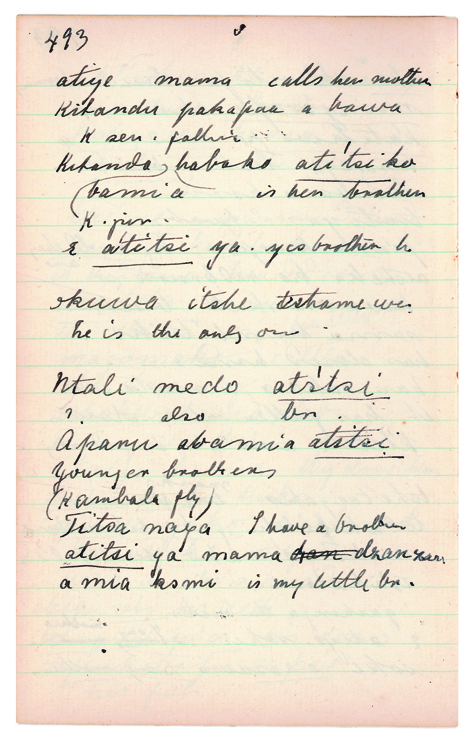 493
atiye mama calls her mother
Kitandu pakapaa a hawa
K sen. father
Kitanda, habako atitsi ko
(bamia is her brother
K. jun.
atitsi ya. yes brother h
okuwa itshe
he is the only one
Ntali medo atitsi
? also br.
Aparu abamia atitsi
younger brothers
(Kambala fly)
Titsa naya I have a brother
atitsi ya mama dzan
a mia ksmi is my little br.